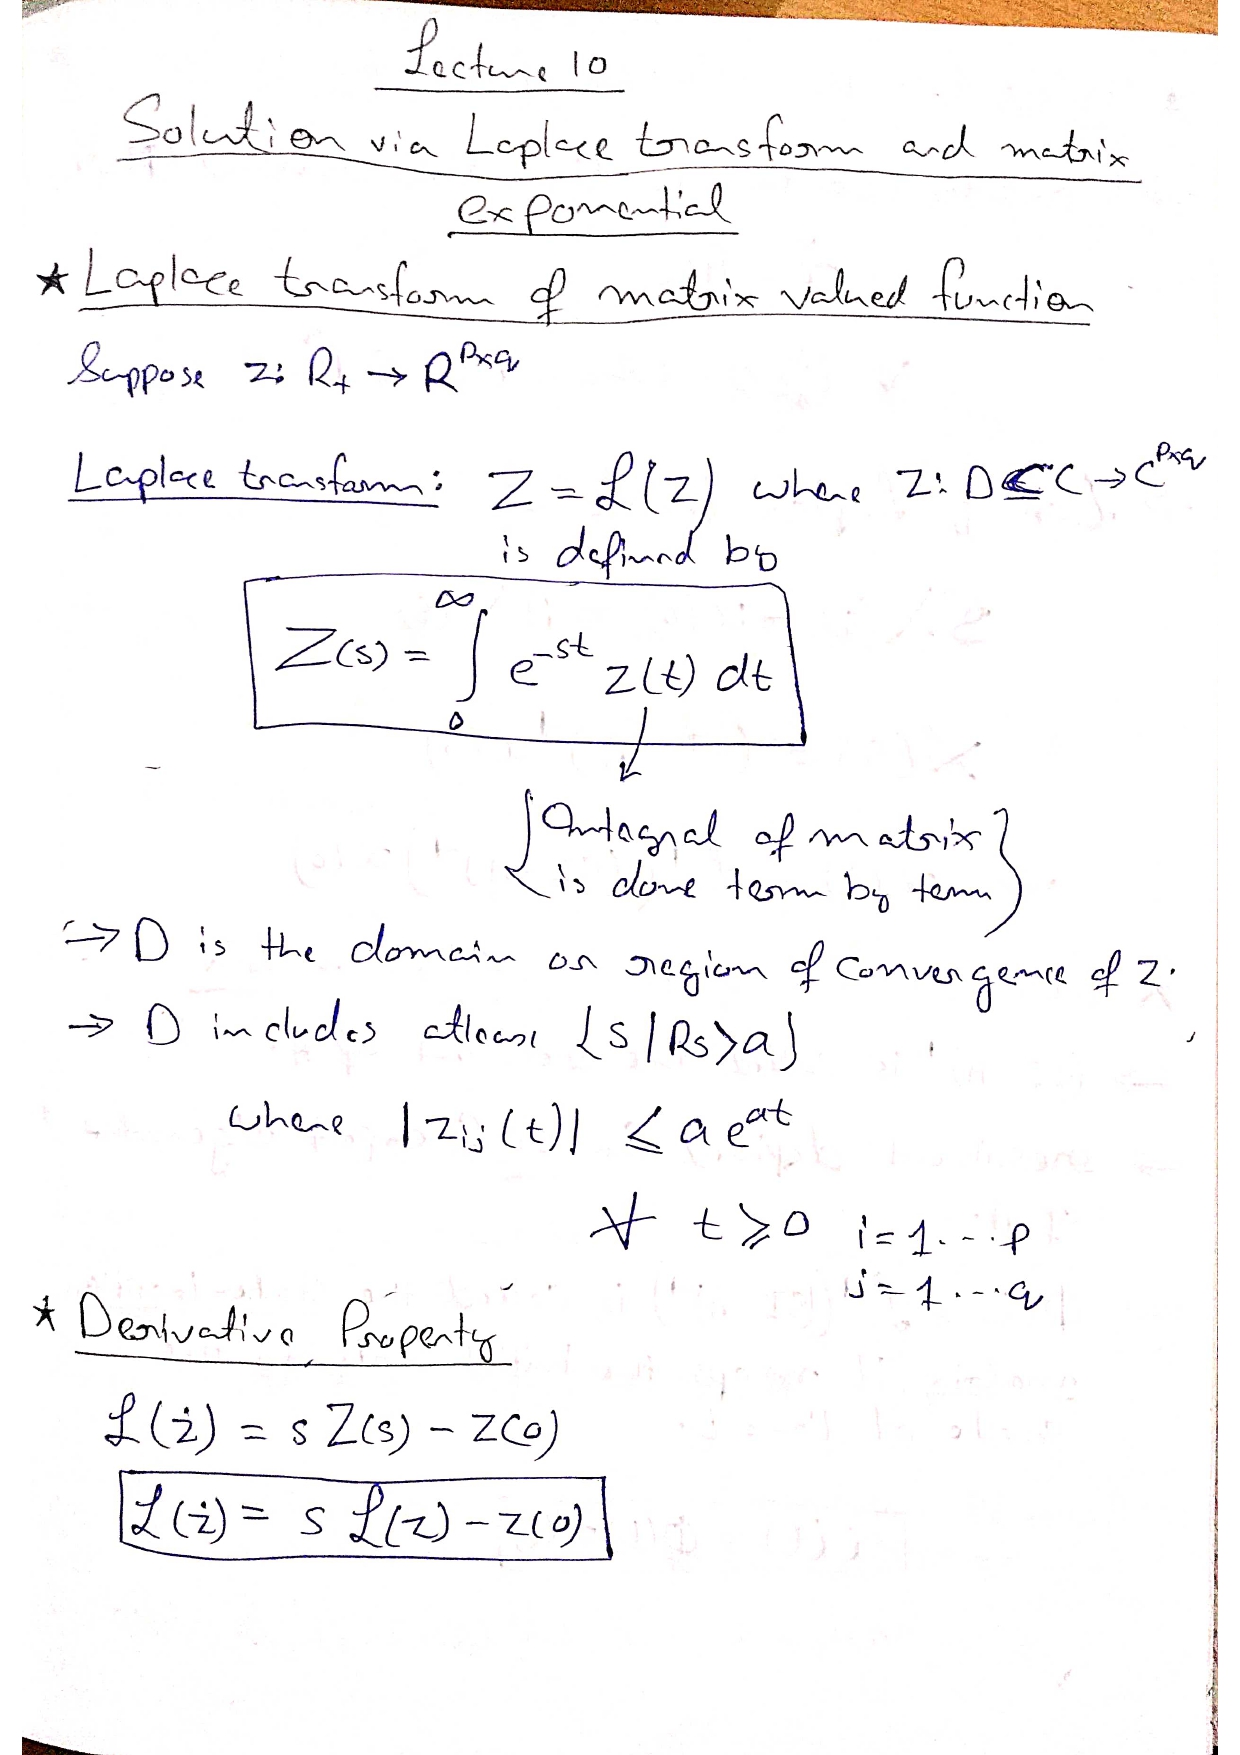 Lecture 10
Solution via Laplace transform and matrix
exponential
★ Laplace transform of matrix valued function
Suppose z: R₊ → R^{p×q}
Laplace transform: Z = ℒ(z) where Z: D ⊆ C → C^{p×q}
is defined by
Z(s) = ∫₀^∞ e^{-st} z(t) dt
{Integral of matrix
is done term by term}
→ D is the domain or region of convergence of z.
→ D includes atleast {s | Rs > a}
where |zᵢⱼ(t)| ≤ a e^{at}
∀ t ≥ 0 i = 1...p
j = 1...q
★ Derivative Property
ℒ(ż) = s Z(s) - z(0)
ℒ(ż) = s ℒ(z) - z(0)